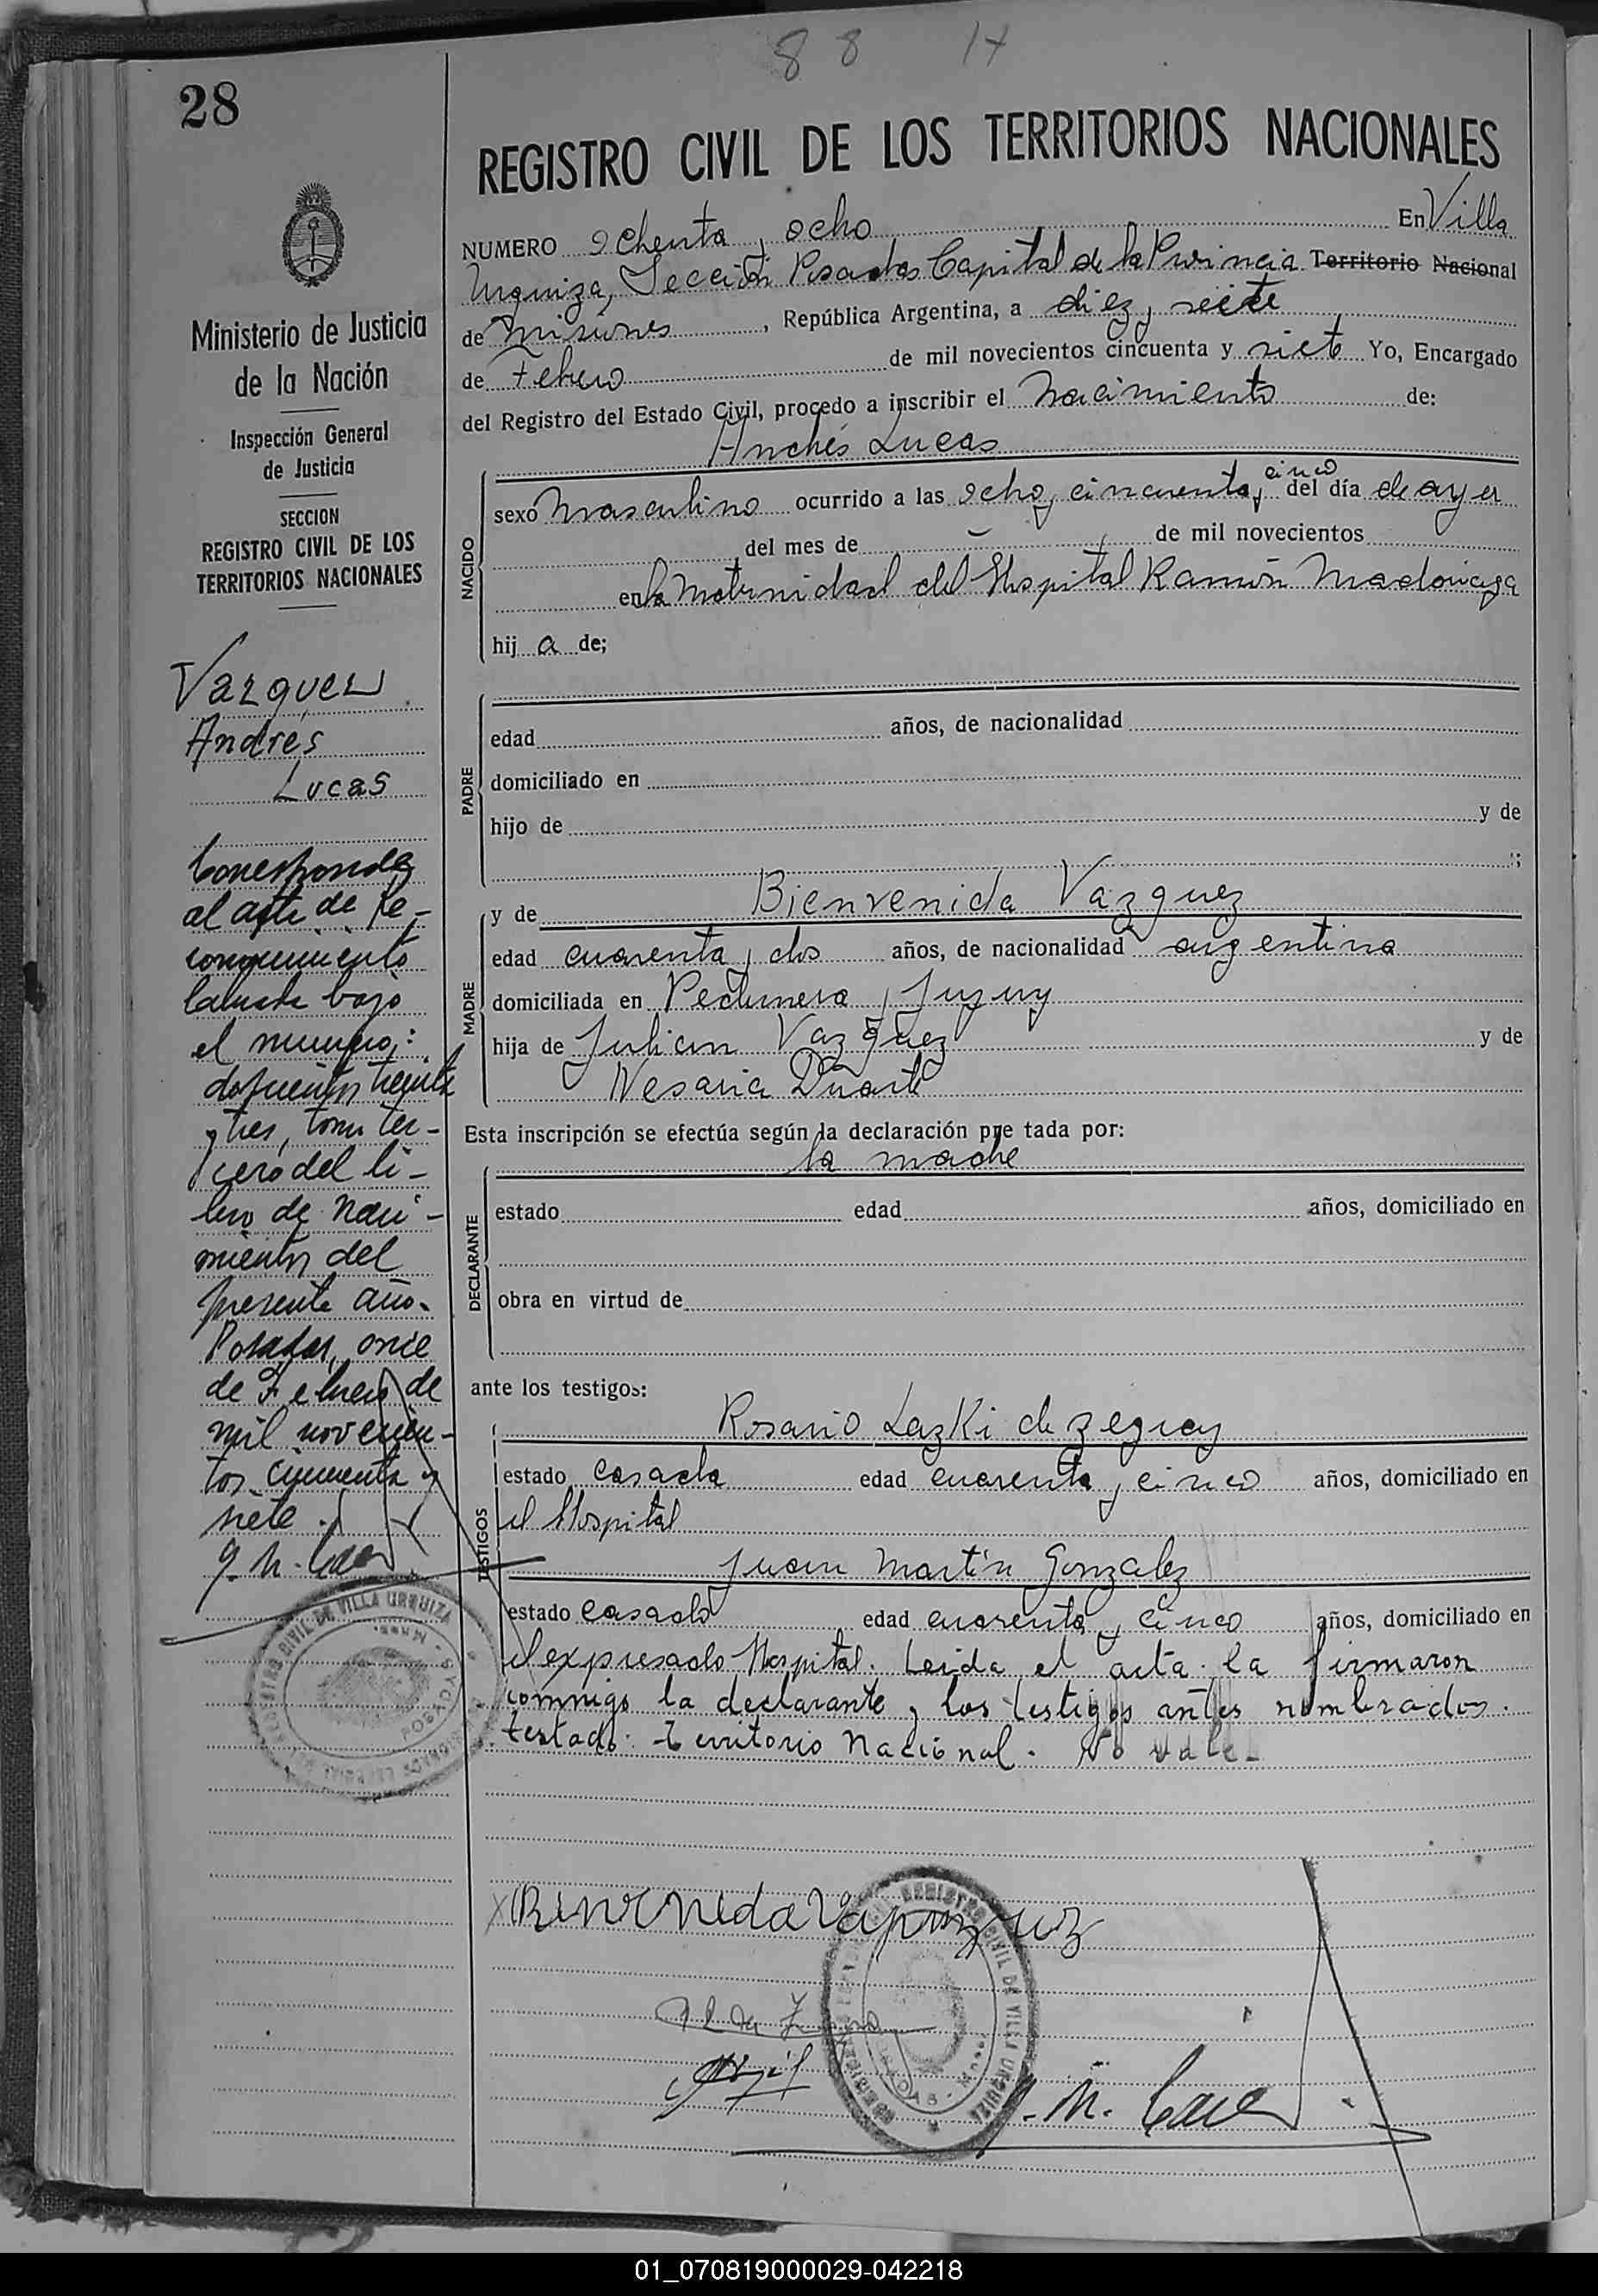 88 17
28
REGISTRO CIVIL DE LOS TERRITORIOS NACIONALES
NUMERO ochenta y ocho En Villa
Urquiza, Sección Posadas Capital de la Provincia Territorio Nacional
de Misiones, República Argentina, a diez y siete
de Febrero de mil novecientos cincuenta y siete Yo, Encargado
del Registro del Estado Civil, procedo a inscribir el nacimiento de:
Andrés Lucas
NACIDO
cinco
sexo masculino ocurrido a las ocho y cincuenta y del día de ayer
del mes de de mil novecientos
en la Maternidad del Hospital Ramón Madariaga
hij a de;
PADRE
edad años, de nacionalidad
domiciliado en
hijo de y de
;
MADRE
y de Bienvenida Vazquez
edad cuarenta y dos años, de nacionalidad argentina
domiciliada en
hija de Julian Vazquez y de
Duarte
Esta inscripción se efectúa según la declaración pre tada por:
la madre
DECLARANTE
estado edad años, domiciliado en
obra en virtud de
ante los testigos:
TESTIGOS
Rosario Lazki de
estado casada edad cuarenta y cinco años, domiciliado en
el Hospital
Juan Martín Gonzalez
estado casado edad cuarenta y cinco años, domiciliado en
el expresado Hospital. Leida el acta la firmaron
conmigo la declarante y los testigos antes nombrados.
testado: Territorio Nacional. No vale-
Ministerio de Justicia
de la Nación
Inspección General
de Justicia
SECCION
REGISTRO CIVIL DE LOS
TERRITORIOS NACIONALES
Vazquez
Andrés
Lucas
Corresponde
al acta de re-
conocimiento
labrada bajo
el numero:
doscientos treinta
y tres, tomo ter-
cero del li-
bro de Naci-
mientos del
presente año.
Posadas, once
de Febrero de
mil novecien-
tos cincuenta y
siete.
REGISTRO CIVIL DE VILLA URQUIZA
POSADAS - Mnes.
REGISTRO CIVIL DE VILLA URQUIZA
01_070819000029-042218